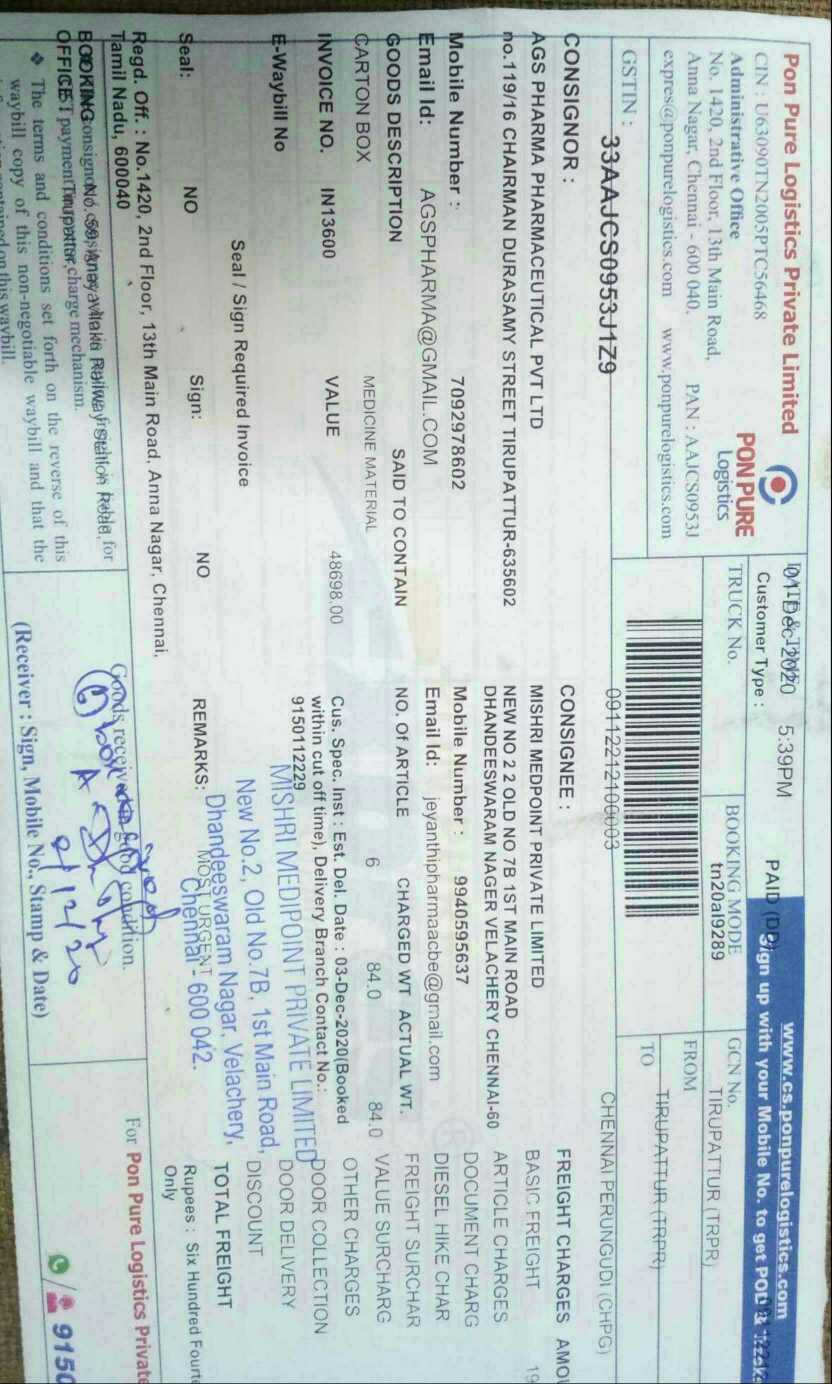 Pon Pure Logistics Private Limited
CIN : U63090TN2005PTC56468
Administrative Office
No. 1420, 2nd Floor, 13th Main Road,
Anna Nagar, Chennai - 600 040.
PAN : AAJCS0953J
expres@ponpurelogistics.com www.ponpurelogistics.com
PON PURE
Logistics
GSTIN :
33AAJCS0953J1Z9
01-Dec-2020 5:39PM
Customer Type :
PAID
www.cs.ponpurelogistics.com
Sign up with your Mobile No. to get POD &
TRUCK No.
BOOKING MODE
tn20al9289
GCN No.
TIRUPATTUR (TRPR)
FROM
TIRUPATTUR (TRPR)
TO
CHENNAI PERUNGUDI (CHPG)
09112212100003
CONSIGNOR :
AGS PHARMA PHARMACEUTICAL PVT LTD
no.119/16 CHAIRMAN DURASAMY STREET TIRUPATTUR-635602
Mobile Number : 7092978602
Email Id: AGSPHARMA@GMAIL.COM
CONSIGNEE :
MISHRI MEDPOINT PRIVATE LIMITED
NEW NO 2 2 OLD NO 7B 1ST MAIN ROAD
DHANDEESWARAM NAGER VELACHERY CHENNAI-60
Mobile Number : 9940595637
Email Id: jeyanthipharmaacbe@gmail.com
GOODS DESCRIPTION SAID TO CONTAIN NO. Of ARTICLE CHARGED WT ACTUAL WT.
CARTON BOX MEDICINE MATERIAL 6 84.0 84.0
INVOICE NO. IN13600 VALUE 48698.00
Cus. Spec. Inst : Est. Del. Date : 03-Dec-2020(Booked
within cut off time), Delivery Branch Contact No.:
9150112229
E-Waybill No
Seal / Sign Required Invoice
Seal: NO Sign: NO REMARKS: MOST URGENT
MISHRI MEDIPOINT PRIVATE LIMITED
New No.2, Old No.7B, 1st Main Road,
Dhandeeswaram Nagar, Velachery,
Chennai - 600 042.
FREIGHT CHARGES
BASIC FREIGHT 19
ARTICLE CHARGES
DOCUMENT CHARG
DIESEL HIKE CHAR
FREIGHT SURCHAR
VALUE SURCHARG
OTHER CHARGES
DOOR COLLECTION
DOOR DELIVERY
DISCOUNT
TOTAL FREIGHT
Rupees : Six Hundred Fourte
Only
Regd. Off. : No.1420, 2nd Floor, 13th Main Road, Anna Nagar, Chennai,
Tamil Nadu, 600040
BOOKING
OFFICE
Railway Station Road,
Tirupattur,
payment charge mechanism.
❖ The terms and conditions set forth on the reverse of this
waybill copy of this non-negotiable waybill and that the
contained on this waybill.
Goods received good condition.
2/12/20
(Receiver : Sign, Mobile No., Stamp & Date)
For Pon Pure Logistics Private
9150